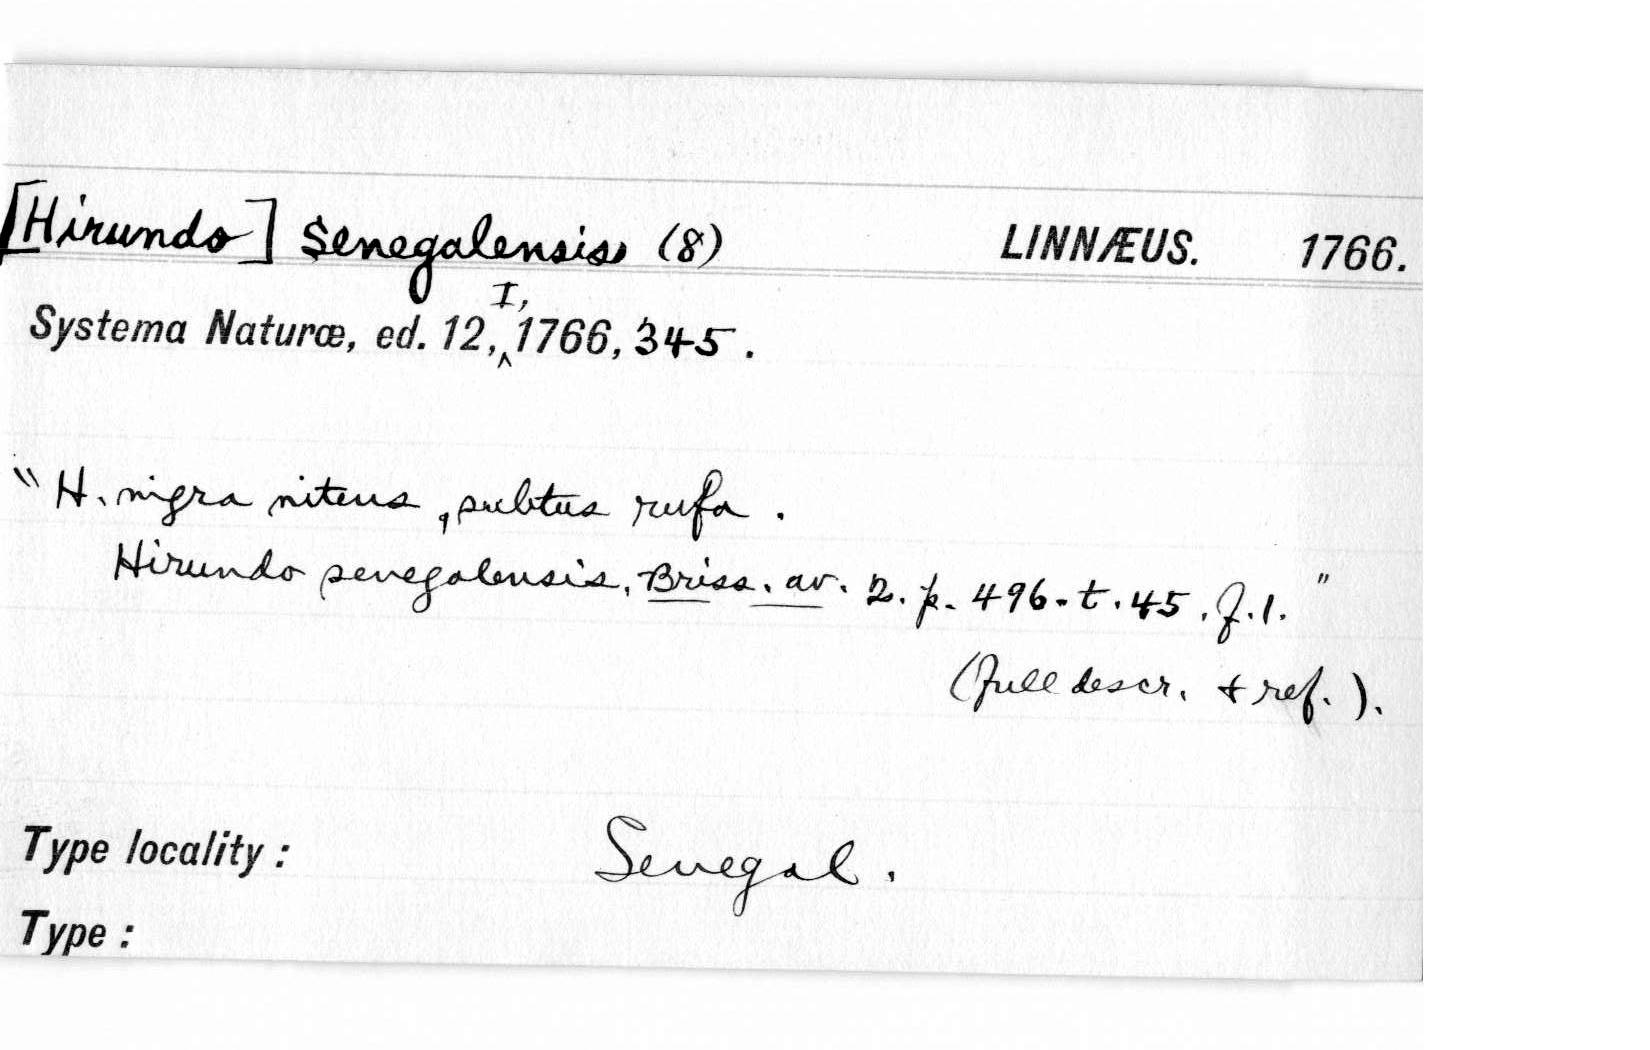 [Hirundo] senegalensis (8) LINNÆUS. 1766.
Systema Naturæ, ed. 12, I, 1766, 345.
"H. nigra nitens, subtus rufa.
Hirundo senegalensis. Briss. av. 2. p. 496. t. 45. f. 1."
(full descr. + ref.).
Type locality: Senegal.
Type: